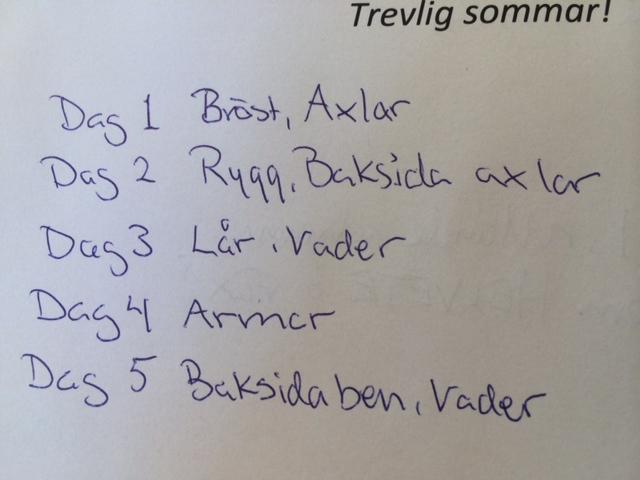 Trevlig sommar!
Dag 1 Bröst, Axlar
Dag 2 Rygg, Baksida axlar
Dag 3 Lår, Vader
Dag 4 Armar
Dag 5 Baksida ben, Vader